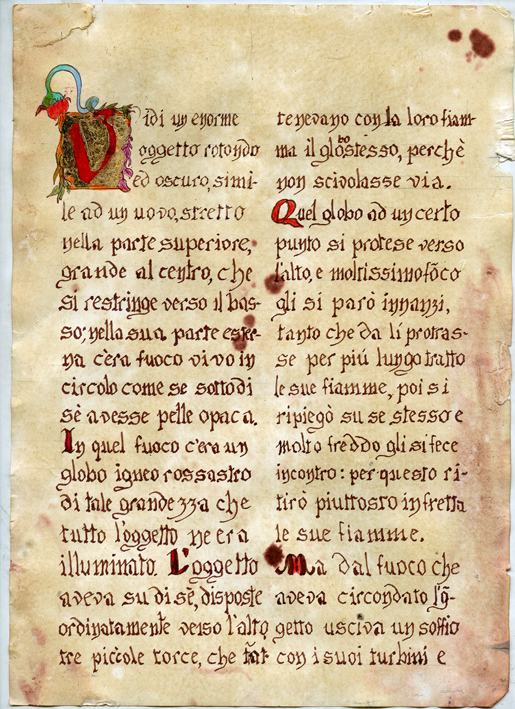 Vidi un enorme
oggetto rotondo
ed oscuro, simi-
le ad un uovo, stretto
nella parte superiore,
grande al centro, che
si restringe verso il bas-
so; nella sua parte ester-
na c'era fuoco vivo in
circolo come se sotto di
sè avesse pelle opaca.
In quel fuoco c'era un
globo igneo rossastro
di tale grandezza che
tutto l'oggetto ne era
illuminato. L'oggetto
aveva su di sè, disposte
ordinatamente verso l'alto
tre piccole torce, che trat
tenevano con la loro fiam-
ma il globo stesso, perchè
non scivolasse via.
Quel globo ad un certo
punto si protese verso
l'alto, e moltissimo fōco
gli si parò innanzi,
tanto che da lí protras-
se per piú lungo tratto
le sue fiamme, poi si
ripiegò su se stesso e
molto freddo gli si fece
incontro: per questo ri-
tirò piuttosto in fretta
le sue fiamme.
Ma dal fuoco che
aveva circondato l'og-
getto usciva un soffio
con i suoi turbini e